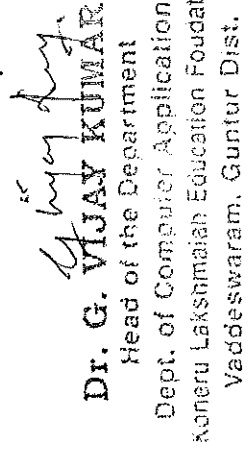 Dr. G. VIJAY KUMAR
Head of the Department
Dept. of Computer Application
Koneru Lakshmaiah Education Foudat
Vaddeswaram, Guntur Dist.